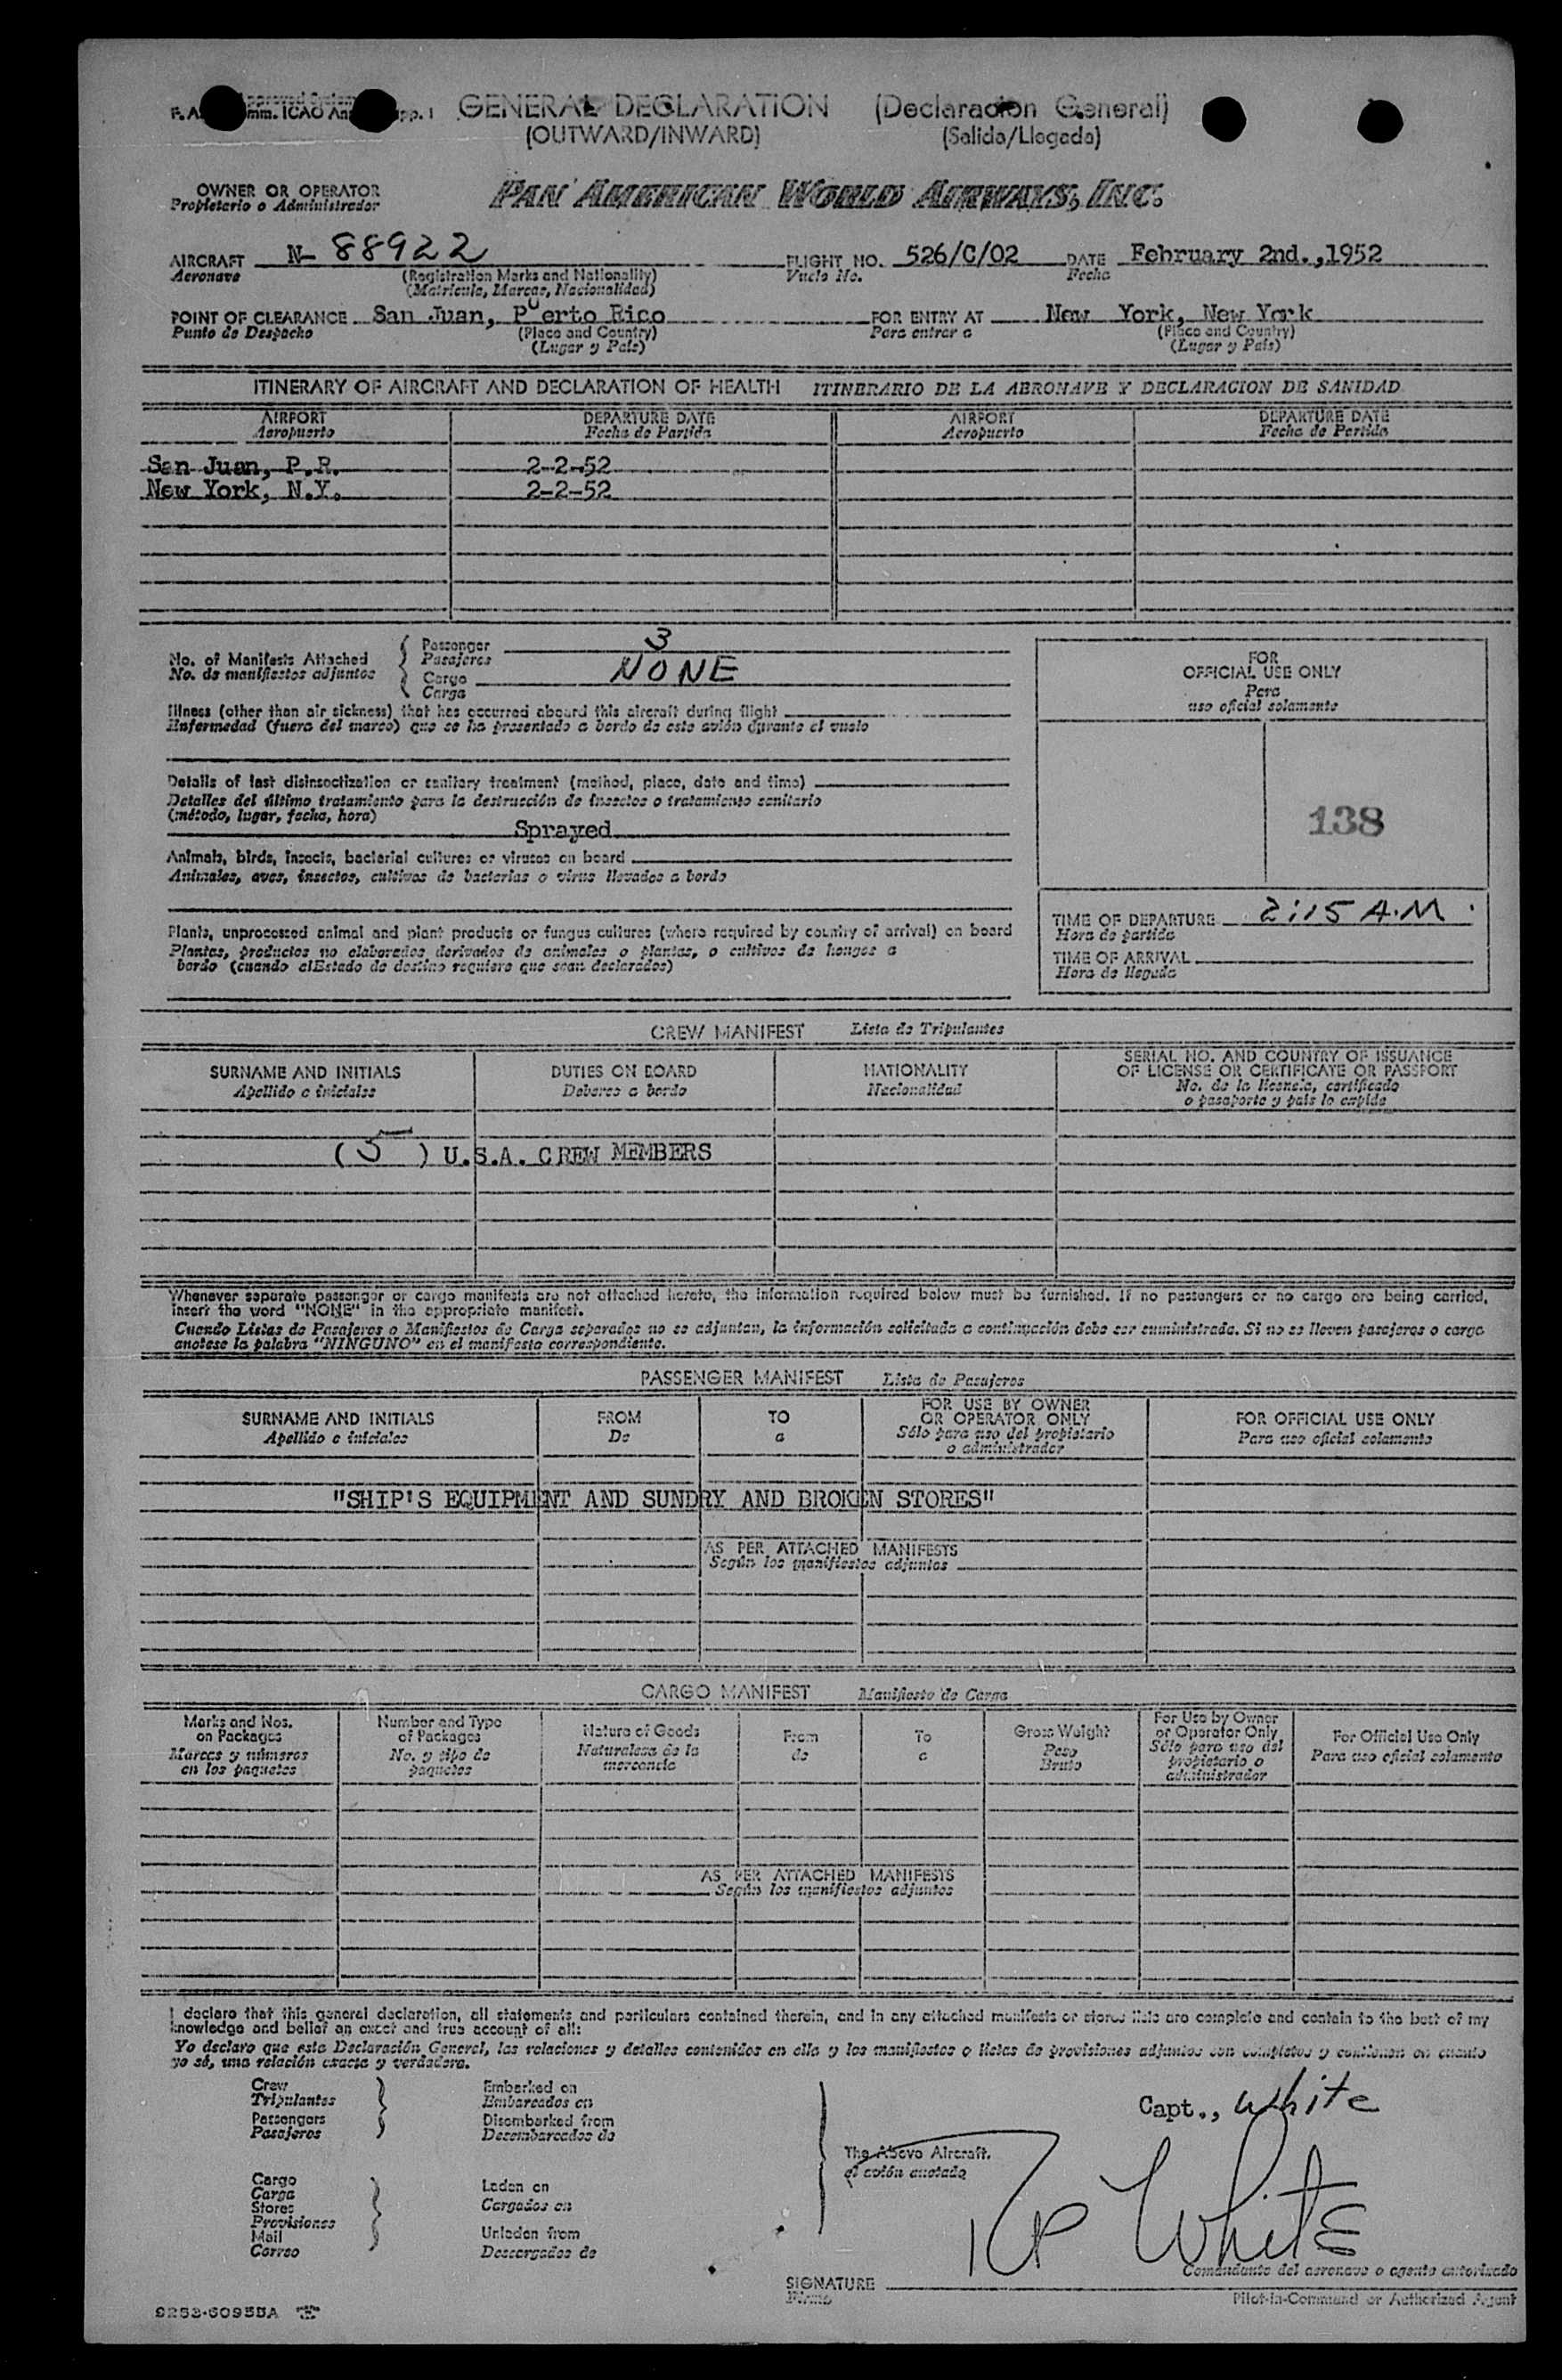 GENERAL DECLARATION (Declaracion General)
(OUTWARD/INWARD) (Salida/Llegada)
OWNER OR OPERATOR
Propietario o Administrador
PAN AMERICAN WORLD AIRWAYS, INC.
AIRCRAFT N- 88922 FLIGHT NO. 526/C/02 DATE February 2nd.,1952
Aeronave (Registration Marks and Nationality) Vuelo No. Fecha
(Matricula, Marcas, Nacionalidad)
POINT OF CLEARANCE San Juan, Puerto Rico FOR ENTRY AT New York, New York
Punto de Despacho (Place and Country) Para entrar a (Place and Country)
(Lugar y País) (Lugar y País)
ITINERARY OF AIRCRAFT AND DECLARATION OF HEALTH ITINERARIO DE LA AERONAVE Y DECLARACION DE SANIDAD
AIRPORT DEPARTURE DATE AIRPORT DEPARTURE DATE
Aeropuerto Fecha de Partida Aeropuerto Fecha de Partida
San Juan, P.R. 2-2-52
New York, N.Y. 2-2-52
No. of Manifests Attached
No. de manifiestos adjuntos
Passenger 3
Pasajeros
Cargo NONE
Carga
FOR
OFFICIAL USE ONLY
Para
uso oficial solamente
Illness (other than air sickness) that has occurred aboard this aircraft during flight
Enfermedad (fuera del mareo) que se ha presentado a bordo de este avión durante el vuelo
Details of last disinsectization or sanitary treatment (method, place, date and time)
Detalles del último tratamiento para la destrucción de insectos o tratamiento sanitario
(método, lugar, fecha, hora)
Sprayed
138
Animals, birds, insects, bacterial cultures or viruses on board
Animales, aves, insectos, cultivos de bacterias o virus llevados a bordo
Plants, unprocessed animal and plant products or fungus cultures (where required by country of arrival) on board
Plantas, productos no elaborados derivados de animales o plantas, o cultivos de hongos a
bordo (cuando el Estado de destino requiere que sean declarados)
TIME OF DEPARTURE 2:15 A.M.
Hora de partida
TIME OF ARRIVAL
Hora de llegada
CREW MANIFEST Lista de Tripulantes
SURNAME AND INITIALS DUTIES ON BOARD NATIONALITY SERIAL NO. AND COUNTRY OF ISSUANCE
OF LICENSE OR CERTIFICATE OR PASSPORT
Apellido e iniciales Deberes a bordo Nacionalidad No. de la licencia, certificado
o pasaporte y país lo expide
( 5 ) U.S.A. CREW MEMBERS
Whenever separate passenger or cargo manifests are not attached hereto, the information required below must be furnished. If no passengers or no cargo are being carried,
insert the word "NONE" in the appropriate manifest.
Cuando Listas de Pasajeros o Manifiestos de Carga separados no se adjuntan, la información solicitada a continuación debe ser suministrada. Si no se lleven pasajeros o carga
anotese la palabra "NINGUNO" en el manifiesto correspondiente.
PASSENGER MANIFEST Lista de Pasajeros
SURNAME AND INITIALS FROM TO FOR USE BY OWNER
OR OPERATOR ONLY FOR OFFICIAL USE ONLY
Apellido e iniciales De a Sólo para uso del propietario
o administrador Para uso oficial solamente
"SHIP'S EQUIPMENT AND SUNDRY AND BROKEN STORES"
AS PER ATTACHED MANIFESTS
Según los manifiestos adjuntos
CARGO MANIFEST Manifiesto de Carga
Marks and Nos.
on Packages
Marcas y números
en los paquetes
Number and Type
of Packages
No. y tipo de
paquetes
Nature of Goods
Naturaleza de la
mercancía
From
de
To
a
Gross Weight
Peso
Bruto
For Use by Owner
or Operator Only
Sólo para uso del
propietario o
administrador
For Official Use Only
Para uso oficial solamente
AS PER ATTACHED MANIFESTS
Según los manifiestos adjuntos
I declare that this general declaration, all statements and particulars contained therein, and in any attached manifests or stores lists are complete and contain to the best of my
knowledge and belief an exact and true account of all:
Yo declaro que esta Declaración General, las relaciones y detalles contenidos en ella y los manifiestos o listas de provisiones adjuntos son completos y contienen en cuanto
yo sé, una relación exacta y verdadera.
Crew
Tripulantes
Passengers
Pasajeros
Embarked on
Embarcados en
Disembarked from
Desembarcados de
Cargo
Carga
Stores
Provisiones
Mail
Correo
Laden on
Cargados en
Unladen from
Descargados de
The Above Aircraft.
el avión anotado
Capt., White
KP White
Comandante del aeronave o agente autorizado
SIGNATURE
Firma
Pilot-in-Command or Authorized Agent